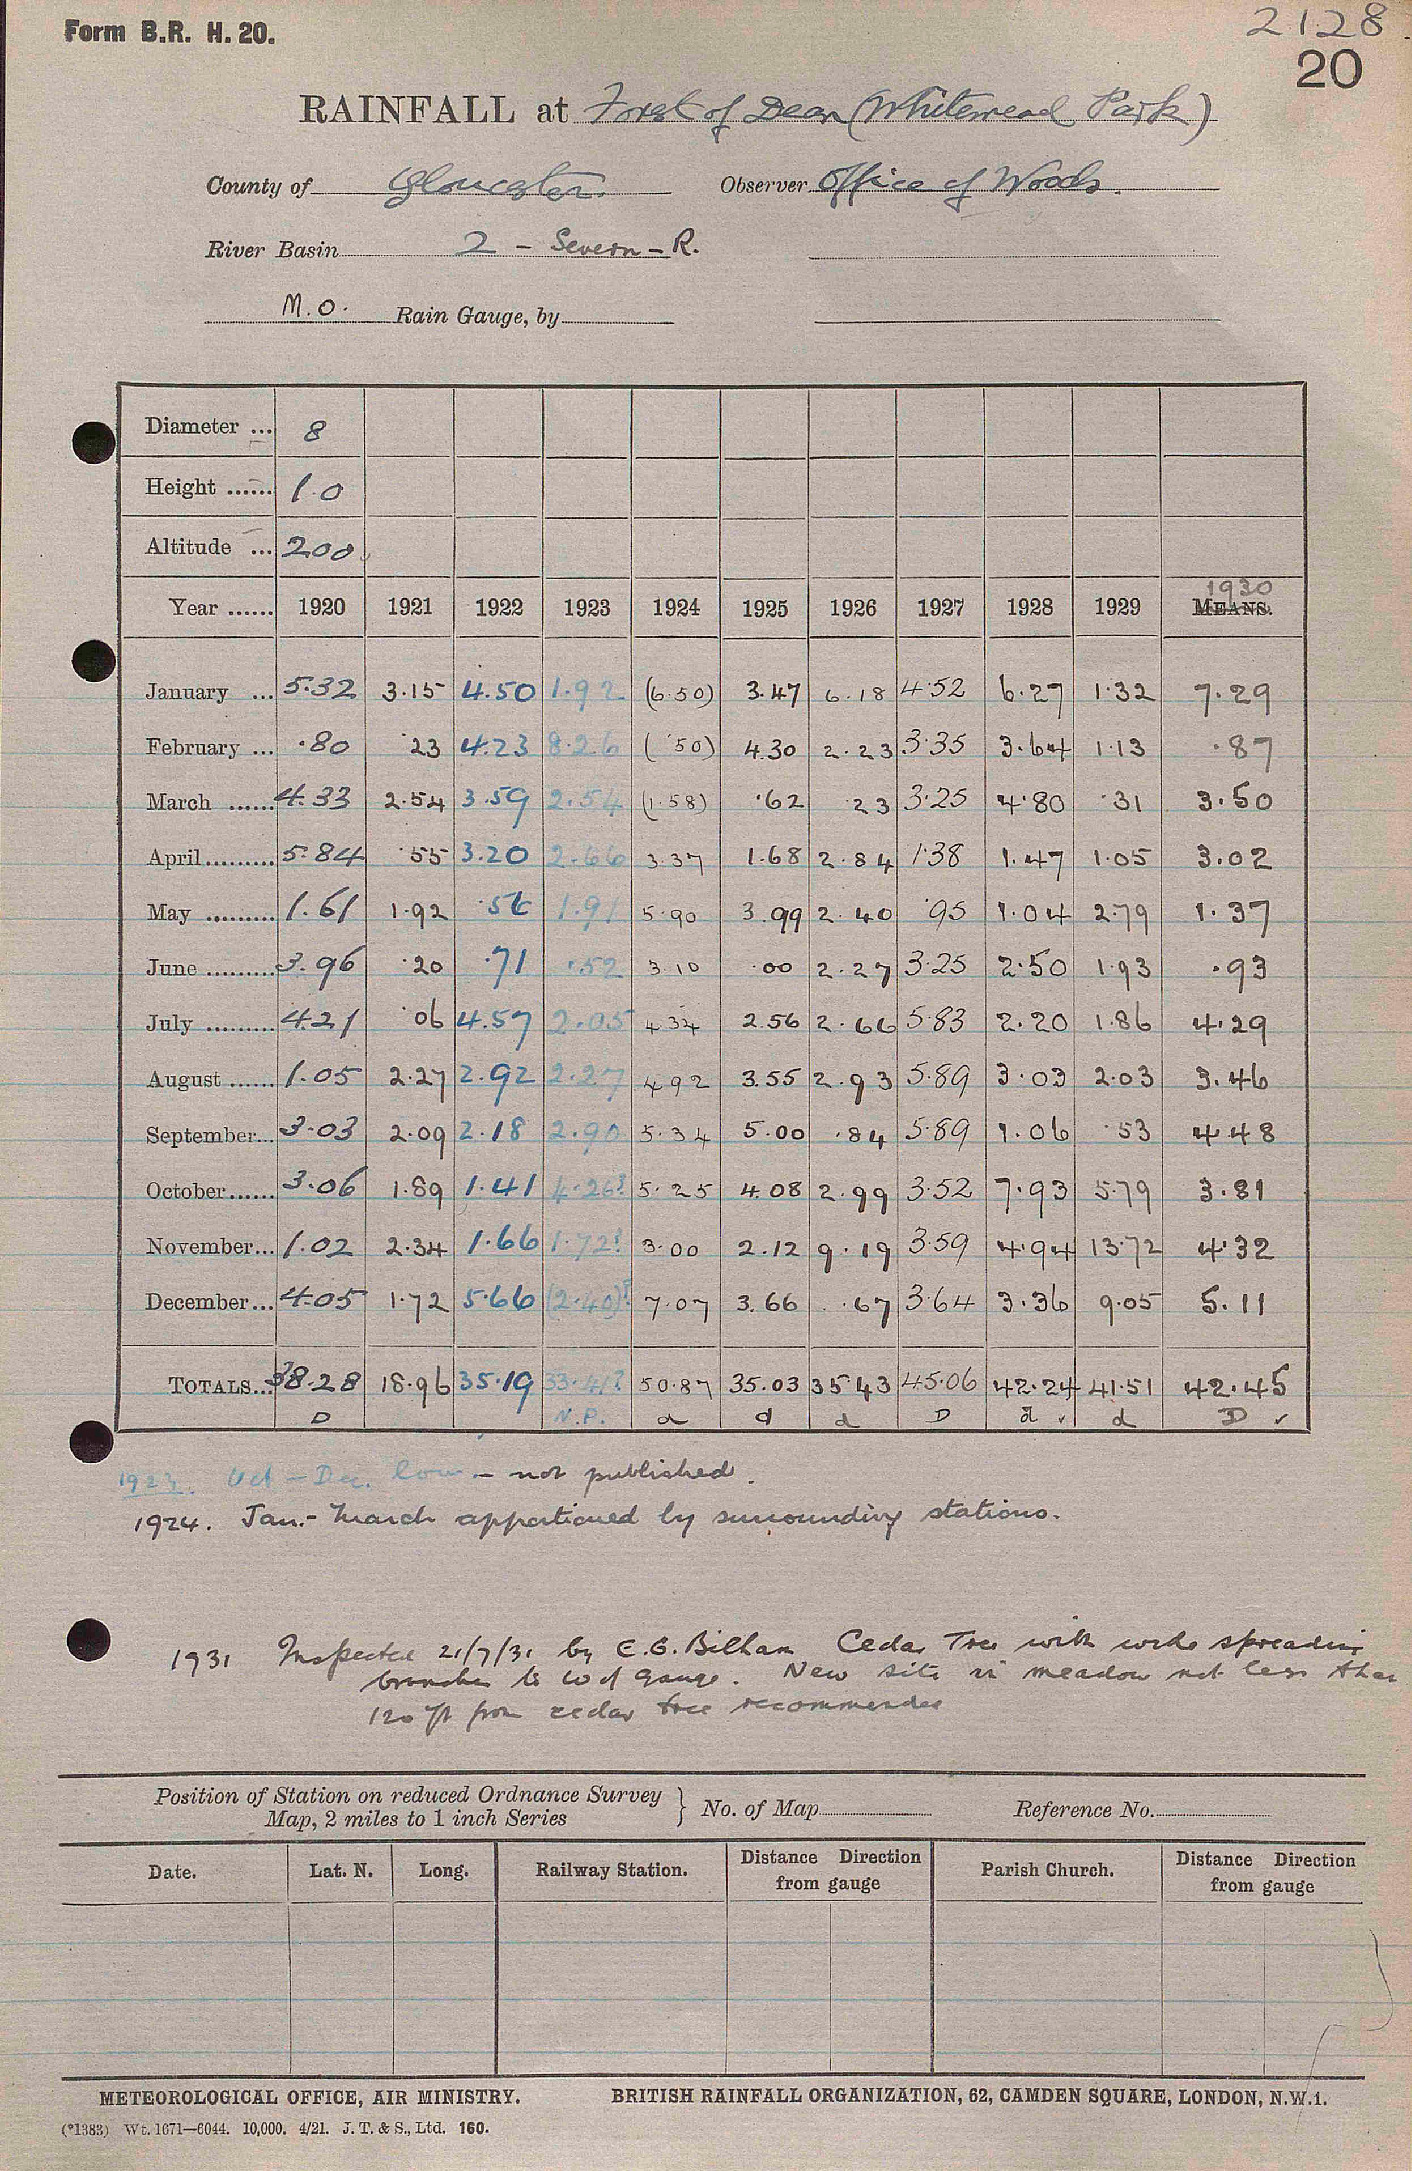 Form B.R. H. 20.
2128
20
RAINFALL at Forest of Dean (Whitemead Park)
County of Gloucester. Observer Office of Woods.
River Basin 2 - Severn - R.
M.O. Rain Gauge, by
Diameter ... 8
Height ...... 1.0
Altitude ... 200
1930
Year ...... 1920 1921 1922 1923 1924 1925 1926 1927 1928 1929 MEANS.
January ... 5.32 3.15 4.50 1.92 (6.50) 3.47 6.18 4.52 6.27 1.32 7.29
February ... .80 .23 4.23 8.26 (.50) 4.30 2.23 3.35 3.64 1.13 .87
March ...... 4.33 2.54 3.59 2.54 (1.58) .62 .23 3.25 4.80 .31 3.50
April ......... 5.84 .55 3.20 2.66 3.37 1.68 2.84 1.38 1.47 1.05 3.02
May ......... 1.61 1.92 .56 1.91 5.90 3.99 2.40 .95 1.04 2.79 1.37
June ......... 3.96 .20 .71 .52 3.10 .00 2.27 3.25 2.50 1.93 .93
July ......... 4.21 .06 4.57 2.05 4.34 2.56 2.66 5.83 2.20 1.86 4.29
August ...... 1.05 2.27 2.92 2.27 4.92 3.55 2.93 5.89 3.03 2.03 3.46
September... 3.03 2.09 2.18 2.90 5.34 5.00 .84 5.89 1.06 .53 4.48
October...... 3.06 1.89 1.41 4.26? 5.25 4.08 2.99 3.52 7.93 5.79 3.81
November... 1.02 2.34 1.66 1.72? 3.00 2.12 9.19 3.59 4.94 13.72 4.32
December... 4.05 1.72 5.66 (2.40)? 7.07 3.66 .67 3.64 3.36 9.05 5.11
TOTALS... 38.28 18.96 35.19 33.41? 50.87 35.03 35.43 45.06 42.24 41.51 42.45
D N.P. d d d D d ✓ d D ✓
1923. Oct - Dec. low - not published.
1924. Jan.- March apportioned by surrounding stations.
1931 Inspected 21/7/31 by E.G. Bilham Cedar Tree with wide spreading
branches to W of gauge. New site in meadow not less than
120 ft from cedar tree recommended
Position of Station on reduced Ordnance Survey
Map, 2 miles to 1 inch Series } No. of Map Reference No.
Date. Lat. N. Long. Railway Station. Distance Direction from gauge Parish Church. Distance Direction from gauge
METEOROLOGICAL OFFICE, AIR MINISTRY. BRITISH RAINFALL ORGANIZATION, 62, CAMDEN SQUARE, LONDON, N.W.1.
(*1383) Wt. 1671—6044. 10,000. 4/21. J. T. & S., Ltd. 160.